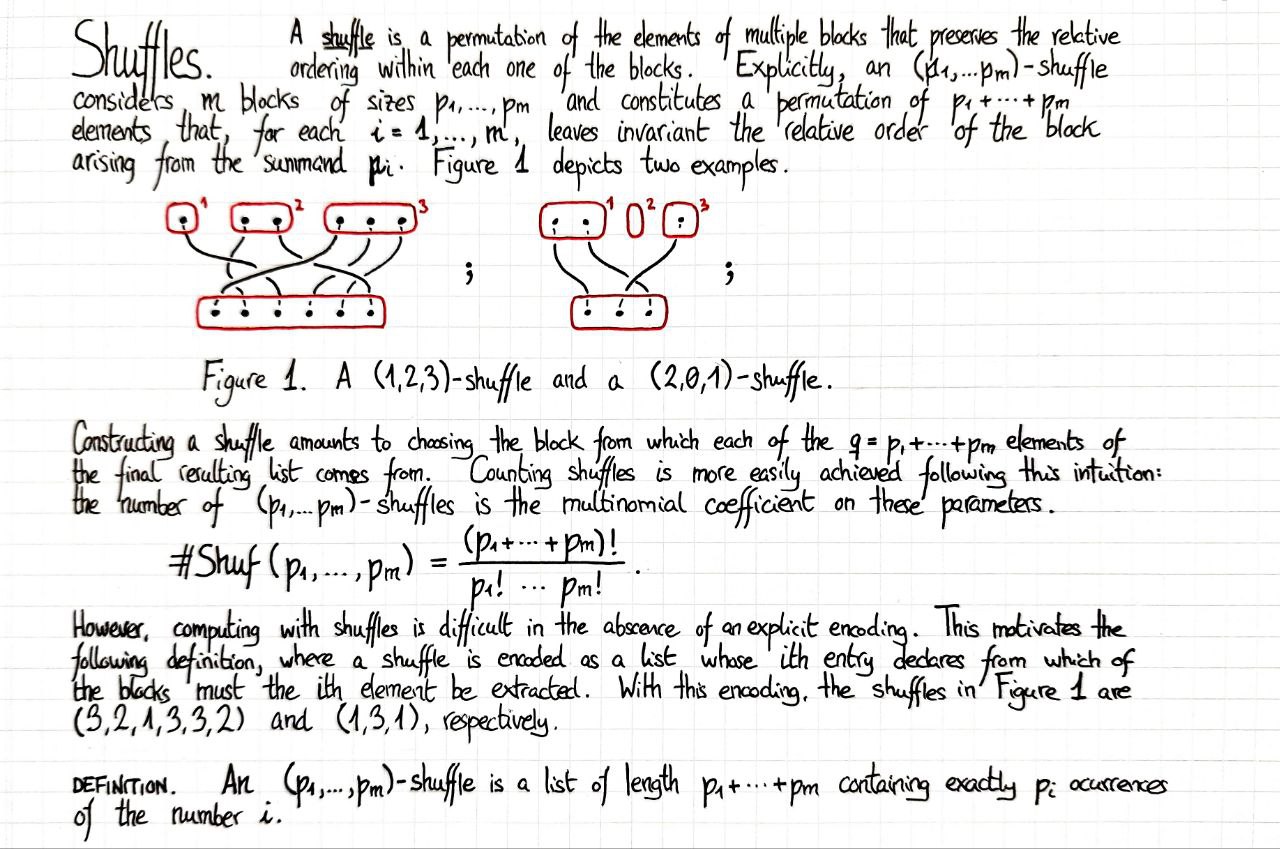 Shuffles. A shuffle is a permutation of the elements of multiple blocks that preserves the relative
ordering within each one of the blocks. Explicitly, an (p₁,...pm)-shuffle
considers m blocks of sizes p₁,...,pm and constitutes a permutation of p₁+⋯+pm
elements that, for each i = 1,..., m, leaves invariant the relative order of the block
arising from the summand pi. Figure 1 depicts two examples.
1 2 3 ; 1 2 3 ;
Figure 1. A (1,2,3)-shuffle and a (2,0,1)-shuffle.
Constructing a shuffle amounts to choosing the block from which each of the q = p₁+⋯+pm elements of
the final resulting list comes from. Counting shuffles is more easily achieved following this intuition:
the number of (p₁,...pm)-shuffles is the multinomial coefficient on these parameters.
#Shuf(p₁,...,pm) = (p₁+⋯+pm)! / p₁! ⋯ pm! .
However, computing with shuffles is difficult in the abscence of an explicit encoding. This motivates the
following definition, where a shuffle is encoded as a list whose ith entry declares from which of
the blocks must the ith element be extracted. With this encoding, the shuffles in Figure 1 are
(3,2,1,3,3,2) and (1,3,1), respectively.
DEFINITION. An (p₁,...,pm)-shuffle is a list of length p₁+⋯+pm containing exactly pi ocurrences
of the number i.